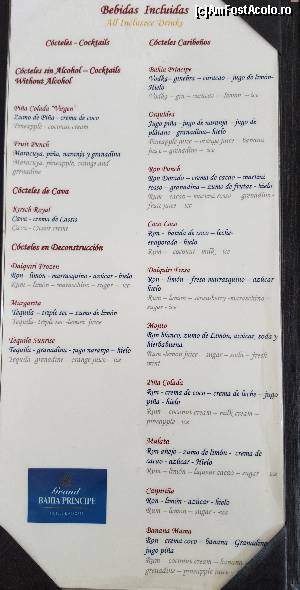 (c)AmFostAcolo.ro
Bebidas Incluidas
All Inclusive Drinks
Cócteles - Cocktails
Cócteles sin Alcohol – Cocktails
Without Alcohol
Piña Colada "Virgen"
Zumo de Piña - crema de coco
Pineapple - coconut cream
Fruit Punch
Maracuya, piña, naranja y granadina
Maracuya, pineapple, orange and
grenadine
Cócteles de Cava
Kirsch Royal
Cava - crema de Cassis
Cava - Cassis creme
Cócteles en Deconstrucción
Daiquiri Frozen
Ron - limón - marrasquino - azúcar - hielo
Rum - lemon - maraschino - sugar - ice
Margarita
Tequila - triple sec - zumo de limón
Tequila - triple sec - lemon juice
Tequila Sunrise
Tequila - granadina - jugo naranja - hielo
Tequila - grenadine - orange juice - ice
Grand
BAHIA PRINCIPE
Cócteles Caribeños
Bahia Principe
Vodka - ginebra - curacao - jugo de limón -
Hielo
Vodka - gin - curacao - lemon - ice
Orquidea
Jugo piña - jugo de naranja - jugo de
plátano - granadina - hielo
Pineapple juice - orange juice - banana
juice - grenadine - ice
Ron Punch
Ron Dorado - crema de cacao - martini
rosso - granadina - zumo de frutas - hielo
fruit juice - ice
Coco Loco
Ron - batida de coco - leche
evaporada - hielo
Rum - coconut - milk - ice
Daiquiri Fresa
Ron - limón - fresa marrasquino - azúcar
- hielo
Rum - lemon - strawberry - maraschino
sugar - ice
Mojito
Ron blanco, zumo de Limón, azúcar, soda y
hierbabuena
Rum - lemon juice - sugar - soda - fresh
mint
Piña Colada
Ron - crema de coco - crema de leche - jugo
piña - hielo
Rum - coconut cream - milk cream -
pineapple - ice
Mulata
Ron añejo - zumo de limón - crema de
cacao - azúcar - Hielo
Rum - lemon - liqueur cacao - sugar - ice
Caipiriña
Ron - limón - azúcar - hielo
Rum - lemon - sugar - ice
Banana Mama
Ron - crema coco - banana - Granadina
jugo piña
Rum - coconut cream - banana
grenadine - pineapple juice